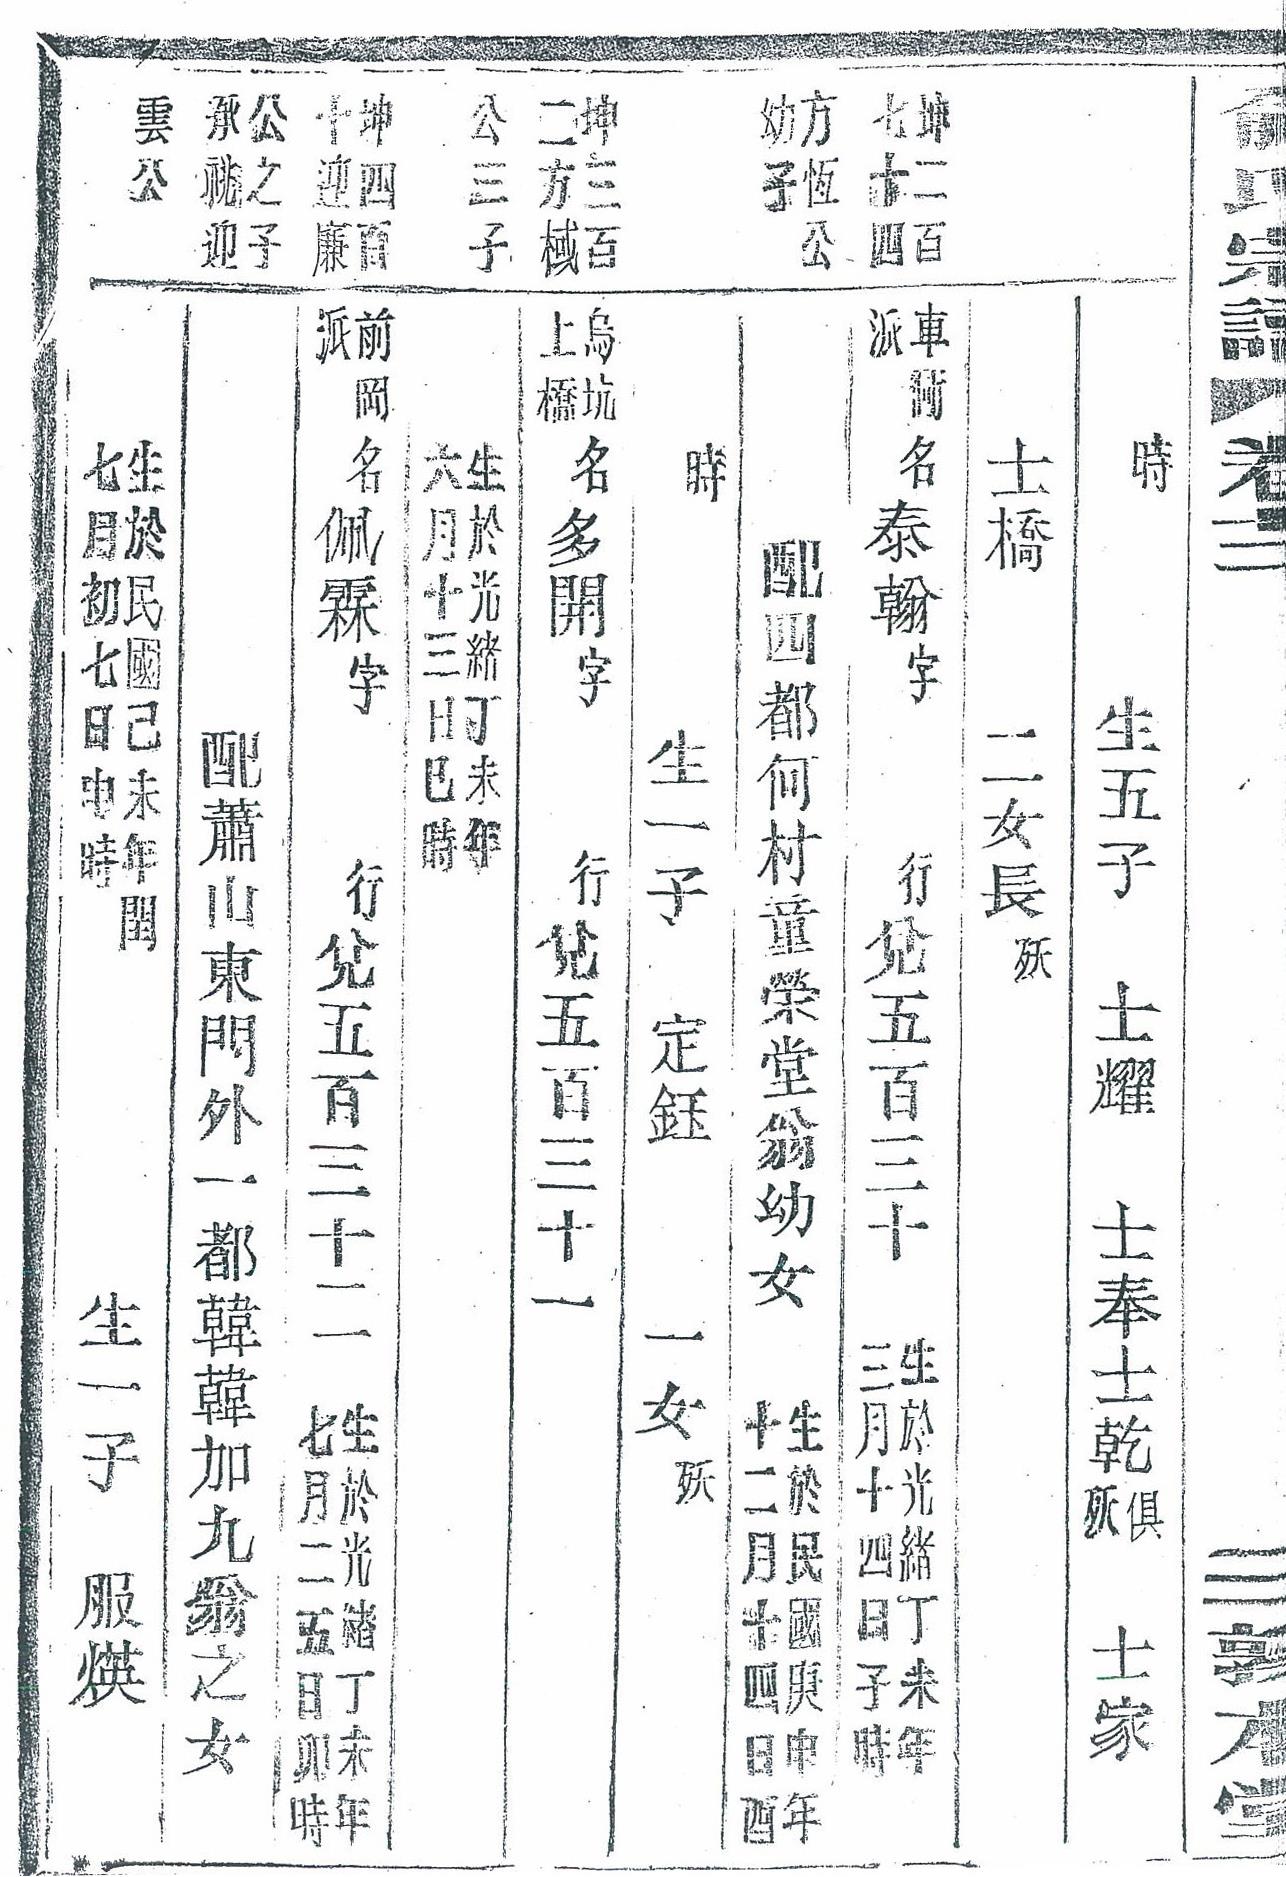 俞氏宗譜 卷三 敦本堂
時 生五子 士耀 士奉 士乾 俱殀 士家
士橋 二女長 殀
坤二百七十四 車衖派 名泰翰 字 行兌五百三十 生於光緒丁未年三月十四日子時
方恆公幼子 配四都何村童榮堂翁幼女 生於民國庚申年十二月十四日酉
時 生一子 定鈺 一女 殀
坤三百二方棫 烏坑上橋 名多開 字 行兌五百三十一
公三子 生於光緒丁未年六月十三日巳時
坤四百十迎廉 前岡派 名佩霖 字 行兌五百三十二 生於光緒丁未年七月二五日卯時
公之子承祧迎 配蕭山東門外一都韓韓加九翁之女
雲公 生於民國己未年閏七月初七日申時 生一子 服煐